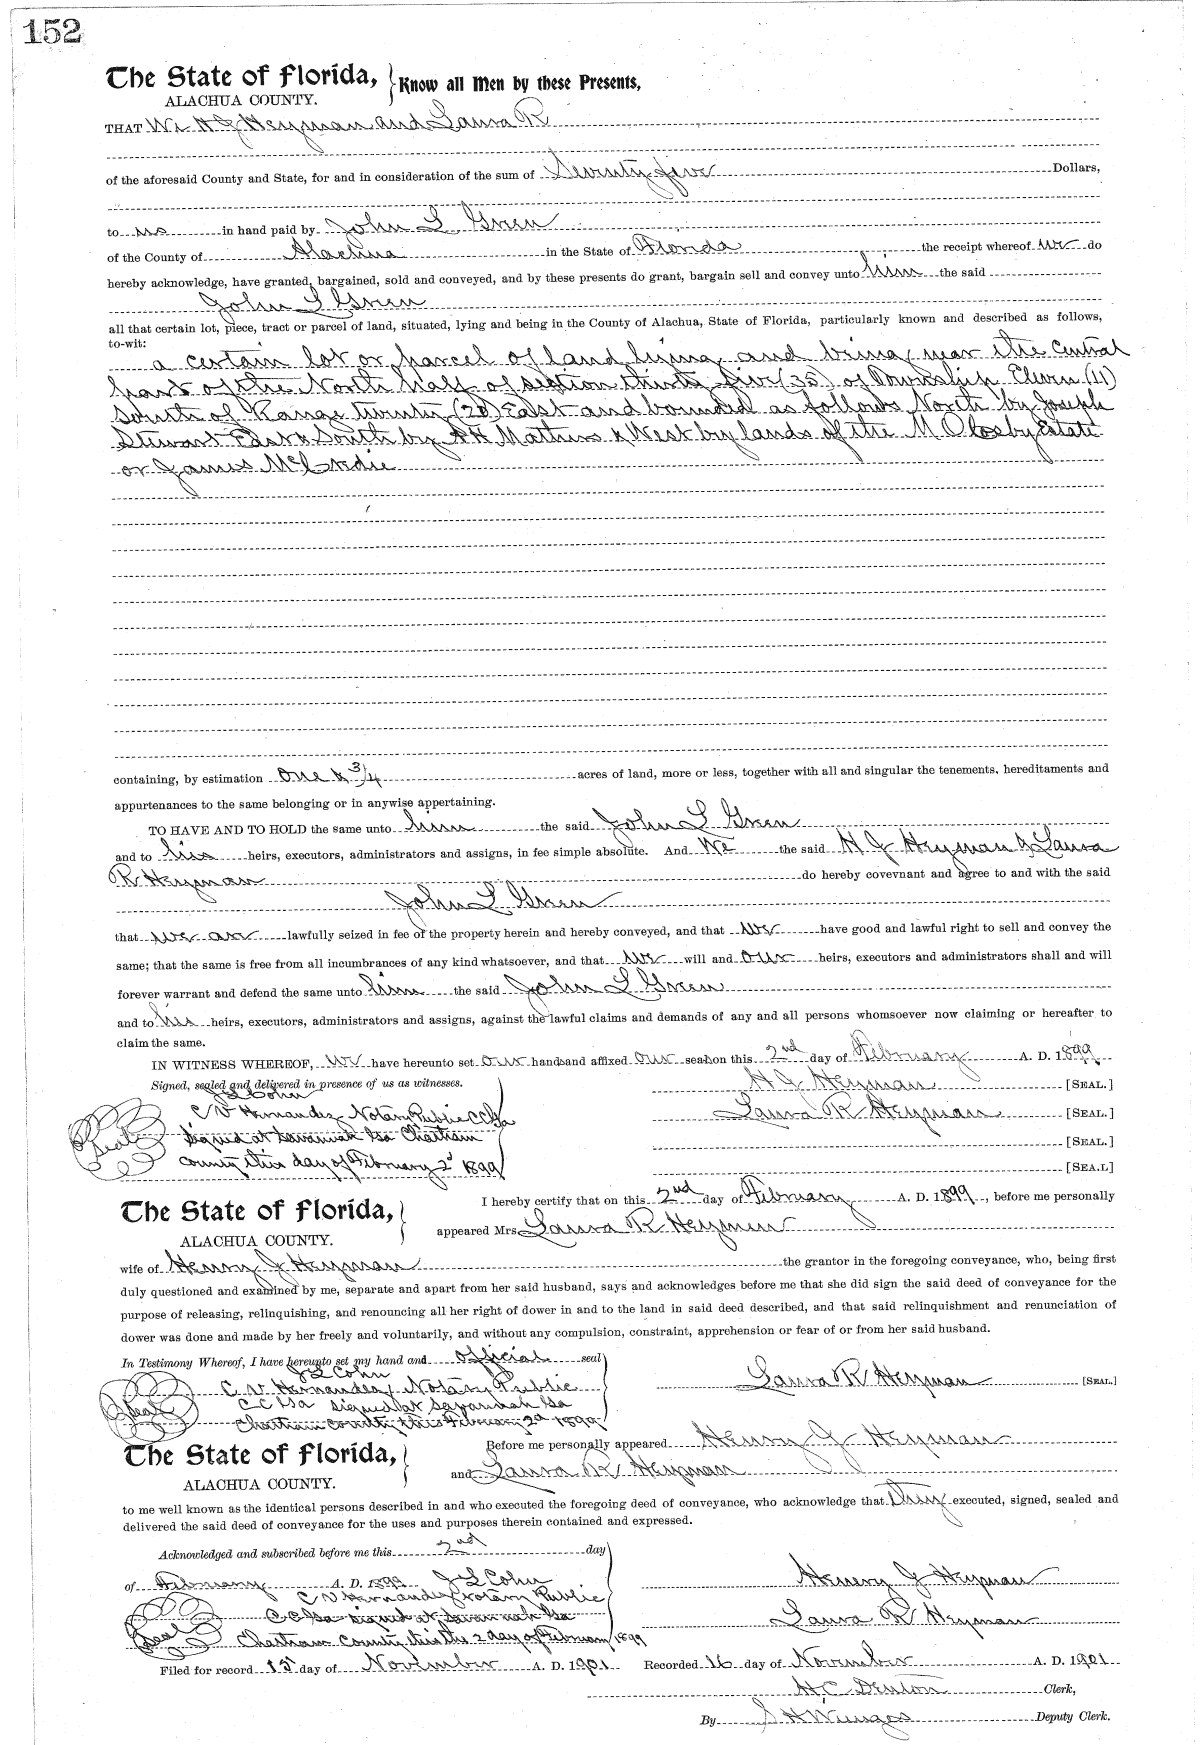 152
The State of Florida, } Know all Men by these Presents,
ALACHUA COUNTY.
THAT We H J Heyman and Laura R
of the aforesaid County and State, for and in consideration of the sum of Seventy five Dollars,
to us in hand paid by John L Green
of the County of Alachua in the State of Florida the receipt whereof we do
hereby acknowledge, have granted, bargained, sold and conveyed, and by these presents do grant, bargain sell and convey unto him the said
John L Green
all that certain lot, piece, tract or parcel of land, situated, lying and being in the County of Alachua, State of Florida, particularly known and described as follows,
to-wit:
a certain lot or parcel of land lying and being near the central
part of the North half of section thirty five (35) of Township Eleven (11)
South of Range twenty (20) East and bounded as follows North by Joseph
Stewart East & South by Mathews & West by lands of the M O Estate
or James
containing, by estimation one & 3/4 acres of land, more or less, together with all and singular the tenements, hereditaments and
appurtenances to the same belonging or in anywise appertaining.
TO HAVE AND TO HOLD the same unto him the said John L Green
and to his heirs, executors, administrators and assigns, in fee simple absolute. And We the said H J Heyman & Laura
R Heyman do hereby covevnant and agree to and with the said
John L Green
that we are lawfully seized in fee of the property herein and hereby conveyed, and that we have good and lawful right to sell and convey the
same; that the same is free from all incumbrances of any kind whatsoever, and that we will and our heirs, executors and administrators shall and will
forever warrant and defend the same unto him the said John L Green
and to his heirs, executors, administrators and assigns, against the lawful claims and demands of any and all persons whomsoever now claiming or hereafter to
claim the same.
IN WITNESS WHEREOF, we have hereunto set our hands and affixed our seas on this 2nd day of February A. D. 1899
Signed, sealed and delivered in presence of us as witnesses. H J Heyman [SEAL.]
J L Cohn
C V Hernandez Notary Public C C Ga Laura R Heyman [SEAL.]
Seal Signed at Savannah Ga Chatham [SEAL.]
County this day of February 2d 1899 [SEA.L]
The State of Florida, } I hereby certify that on this 2nd day of February A. D. 1899, before me personally
ALACHUA COUNTY. appeared Mrs Laura R Heyman
wife of Henry J Heyman the grantor in the foregoing conveyance, who, being first
duly questioned and examined by me, separate and apart from her said husband, says and acknowledges before me that she did sign the said deed of conveyance for the
purpose of releasing, relinquishing, and renouncing all her right of dower in and to the land in said deed described, and that said relinquishment and renunciation of
dower was done and made by her freely and voluntarily, and without any compulsion, constraint, apprehension or fear of or from her said husband.
In Testimony Whereof, I have hereunto set my hand and official seal
J L Cohn
C V Hernandez, Notary Public Laura R Heyman [SEAL.]
Seal C C Ga signed at Savannah Ga
Chatham County this February 2d 1899
The State of Florida, } Before me personally appeared Henry J Heyman
ALACHUA COUNTY. and Laura R Heyman
to me well known as the identical persons described in and who executed the foregoing deed of conveyance, who acknowledge that they executed, signed, sealed and
delivered the said deed of conveyance for the uses and purposes therein contained and expressed.
Acknowledged and subscribed before me this 2nd day
of February A. D. 1899 J L Cohn Henry J Heyman
C V Hernandez Notary Public
C C Ga signed at Savannah Ga Laura R Heyman
Seal Chatham County this the 2 day of February 1899
Filed for record 15 day of November A. D. 1901 Recorded 16 day of November A. D. 1901
H C Denton Clerk,
By S H Wienges Deputy Clerk.